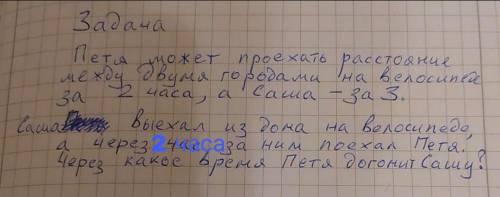 Задача
Петя может проехать расстояние
между двумя городами на велосипеде
за 2 часа, а Саша - за 3.
Саша выехал из дома на велосипеде,
а через 2 часа за ним поехал Петя.
Через какое время Петя догонит Сашу?